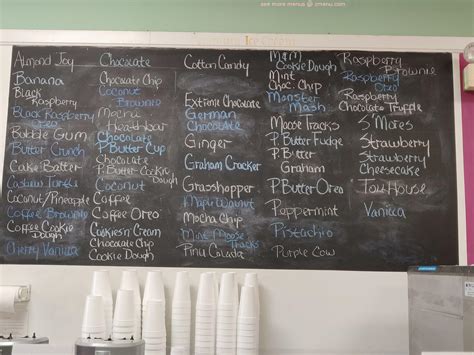 see more menus @ cmenu.com
Almond Joy
Banana
Black
Raspberry
Black Raspberry
Bubble Gum
Butter Crunch
Cake Batter
Cashew Turtle
Coconut/Pineapple
Coffee Brownie
Coffee Cookie
Dough
Cherry Vanilla
Chocolate
Chocolate Chip
Coconut
Brownie
Mocha
Heathbar
Chocolate
P.Butter Cup
Chocolate
P.Butter Cookie
Dough
Coconut
Coffee
Coffee Oreo
Cookies n Cream
Chocolate Chip
Cookie Dough
Cotton Candy
Extreme Chocolate
German
Chocolate
Ginger
Graham Cracker
Grasshopper
Maple Walnut
Mocha Chip
Mint Moose
Tracks
Pina Colada
M&M
Cookie Dough
Mint
Choc. Chip
Monster
Mash
Moose Tracks
P.Butter Fudge
P.Butter
Graham
P.Butter Oreo
Peppermint
Pistachio
Purple Cow
Raspberry
Brownie
Raspberry
Oreo
Raspberry
Chocolate Truffle
S'Mores
Strawberry
Strawberry
Cheesecake
Tow House
Vanilla